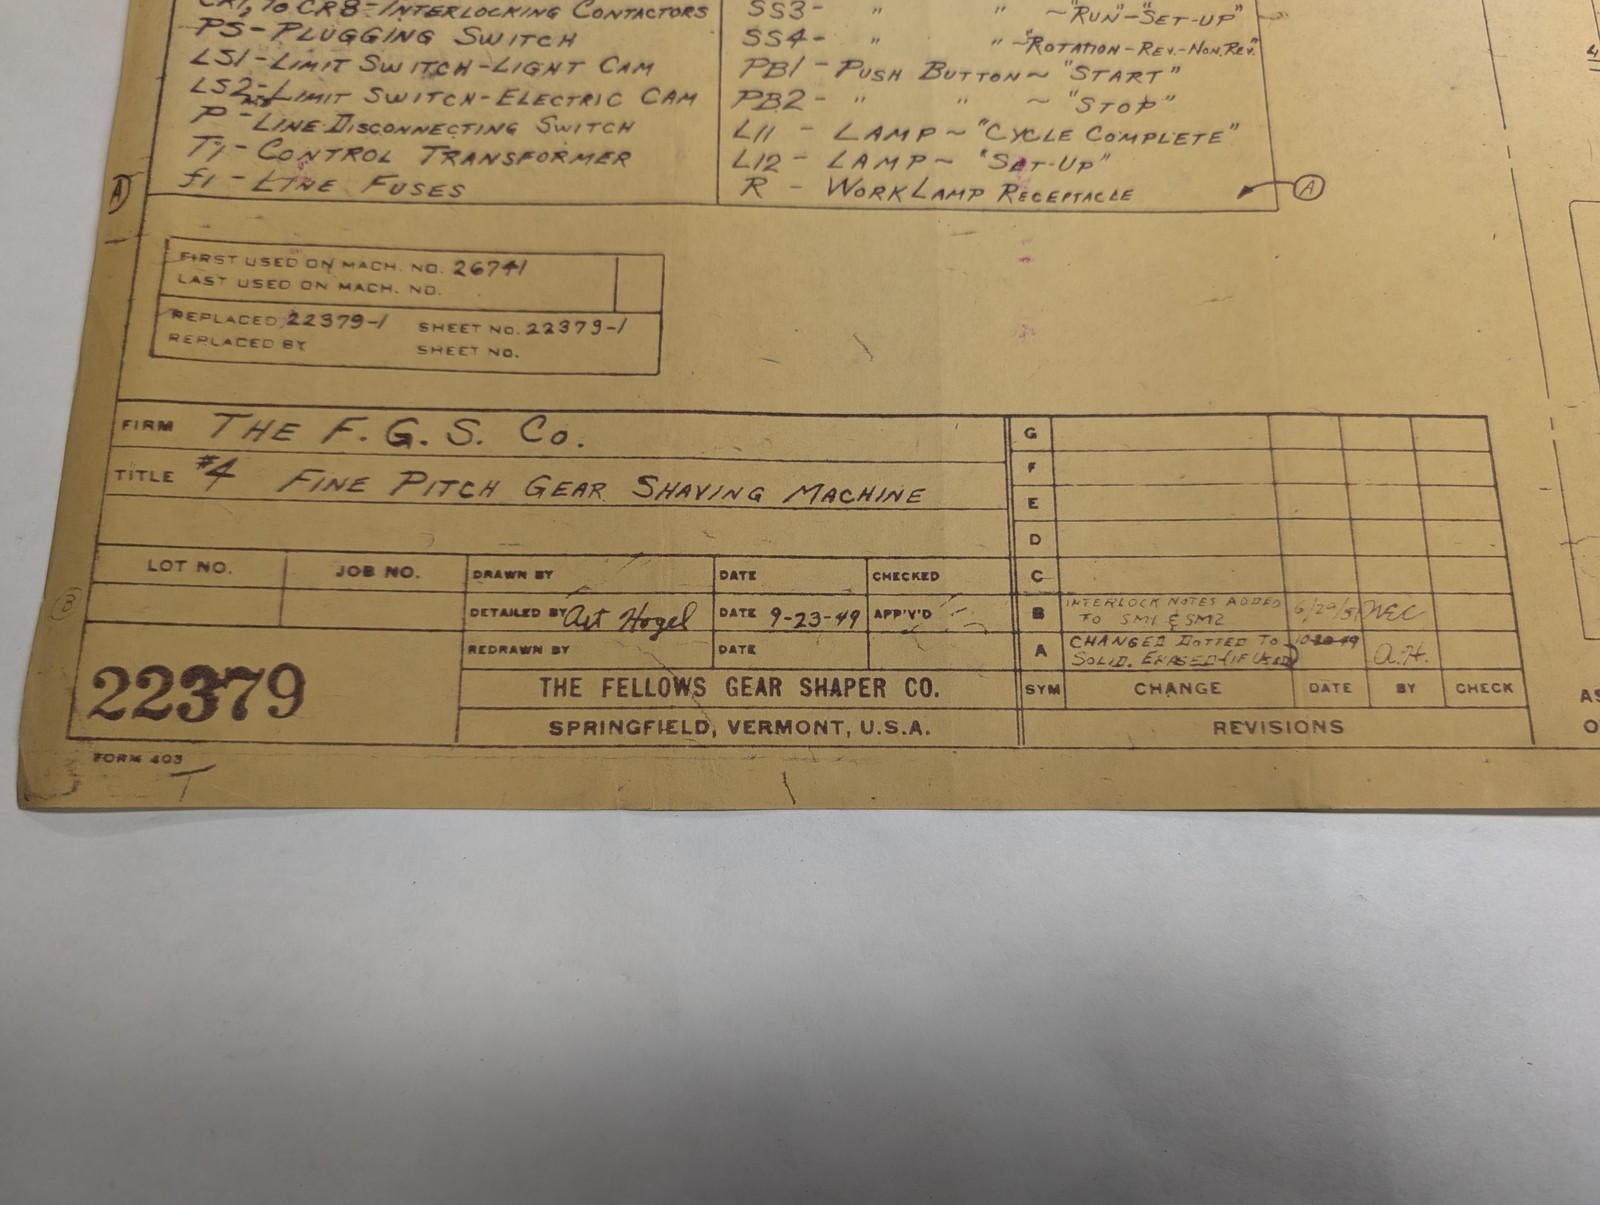 CR1, TO CR8-INTERLOCKING CONTACTORS
PS-PLUGGING SWITCH
LS1-LIMIT SWITCH-LIGHT CAM
LS2-LIMIT SWITCH-ELECTRIC CAM
P-LINE DISCONNECTING SWITCH
T1-CONTROL TRANSFORMER
f1-LINE FUSES
SS3- " " ~"RUN"-"SET-UP"
SS4- " " ~"ROTATION-REV.-NON.REV."
PB1-PUSH BUTTON~ "START"
PB2- " " ~ "STOP"
L11 - LAMP~"CYCLE COMPLETE"
L12-LAMP~ "SET-UP"
R - WORK LAMP RECEPTACLE
A
A
FIRST USED ON MACH. NO. 26741
LAST USED ON MACH. NO.
REPLACED 22379-1 SHEET NO. 22379-1
REPLACED BY SHEET NO.
FIRM THE F. G. S. Co.
TITLE #4 FINE PITCH GEAR SHAVING MACHINE
LOT NO. JOB NO.
DRAWN BY DATE CHECKED
DETAILED BY Art Hogel DATE 9-23-49 APP'V'D
REDRAWN BY DATE
B
22379
THE FELLOWS GEAR SHAPER CO.
SPRINGFIELD, VERMONT, U.S.A.
FORM 403
G
F
E
D
C
B INTERLOCK NOTES ADDED 6/29/51 WEC
TO SM1 & SM2
A CHANGED DOTTED TO 10-20-49 A.H.
SOLID. ERASED (IF USED)
SYM CHANGE DATE BY CHECK
REVISIONS